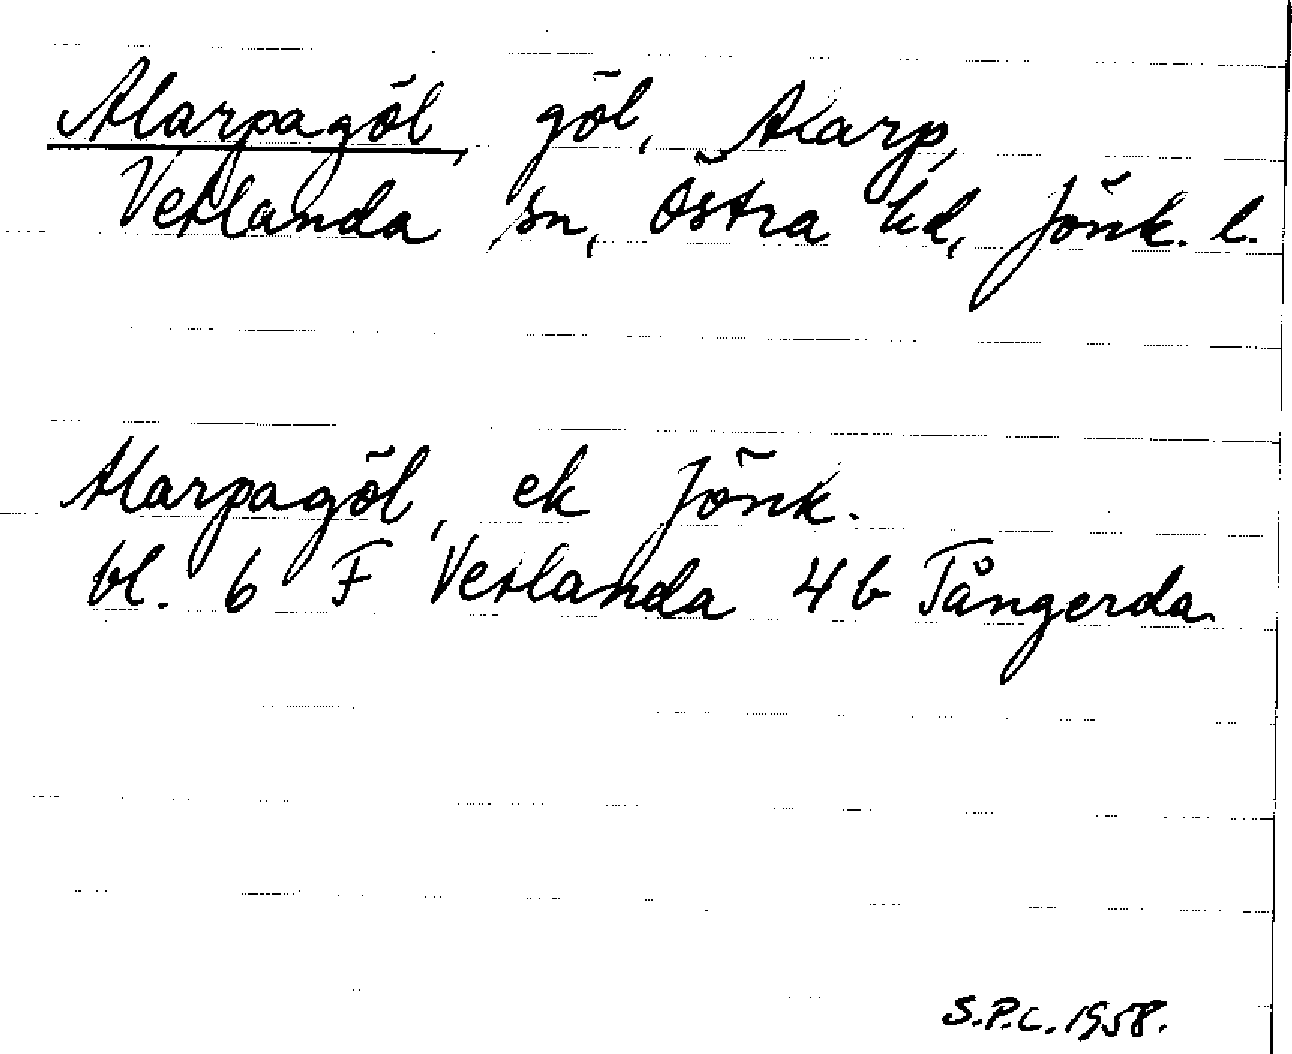 Alarpagöl, göl, Alarp,
Vetlanda sn, Östra hd, Jönk. l.
Alarpagöl, ek Jönk.
bl. 6 F Vetlanda 4b Tångerda.
S.P.L. 1958.